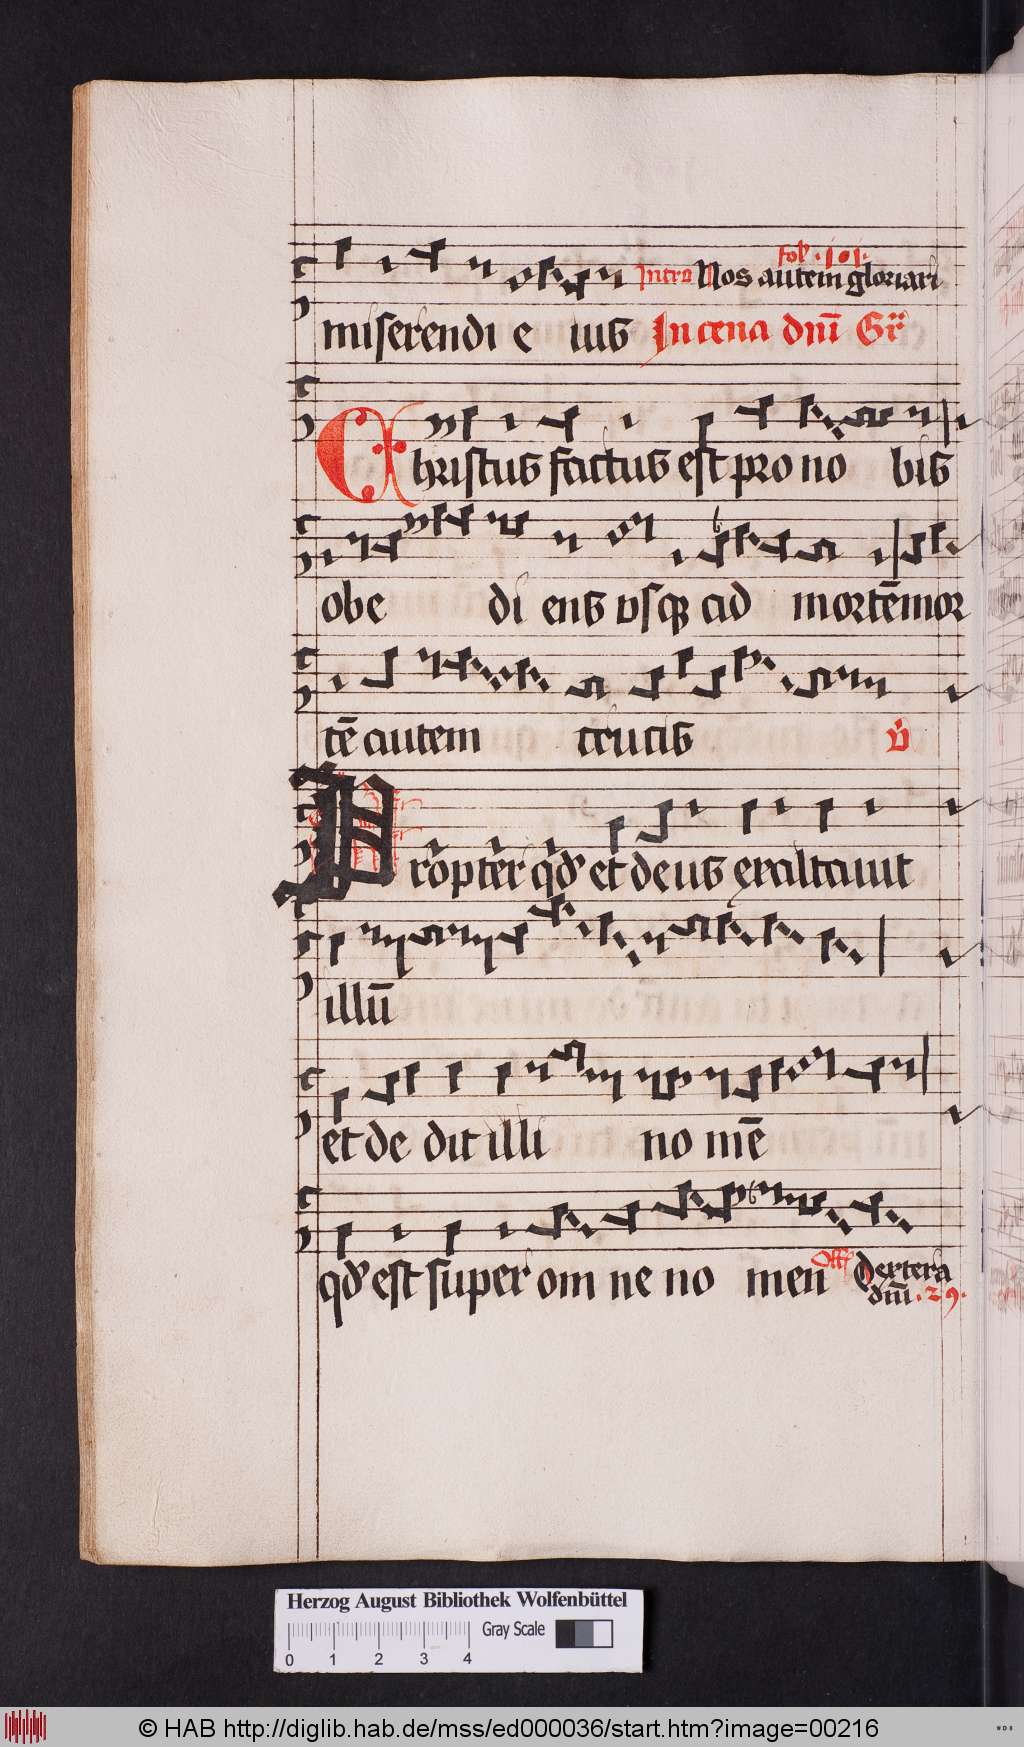 fol. 101.
Intro Nos autem gloriari
miserendi e ius In cena dnī Gr̄
Christus factus est pro no bis
obe di ens usq ad mortē mor
tē autem crucis v̇
Propter qđ et deus exaltauit
illū
et de dit illi no mē
qđ est super om ne no men Off Dextera
dnī. 29.
Herzog August Bibliothek Wolfenbüttel
Gray Scale
0 1 2 3 4
© HAB http://diglib.hab.de/mss/ed000036/start.htm?image=00216